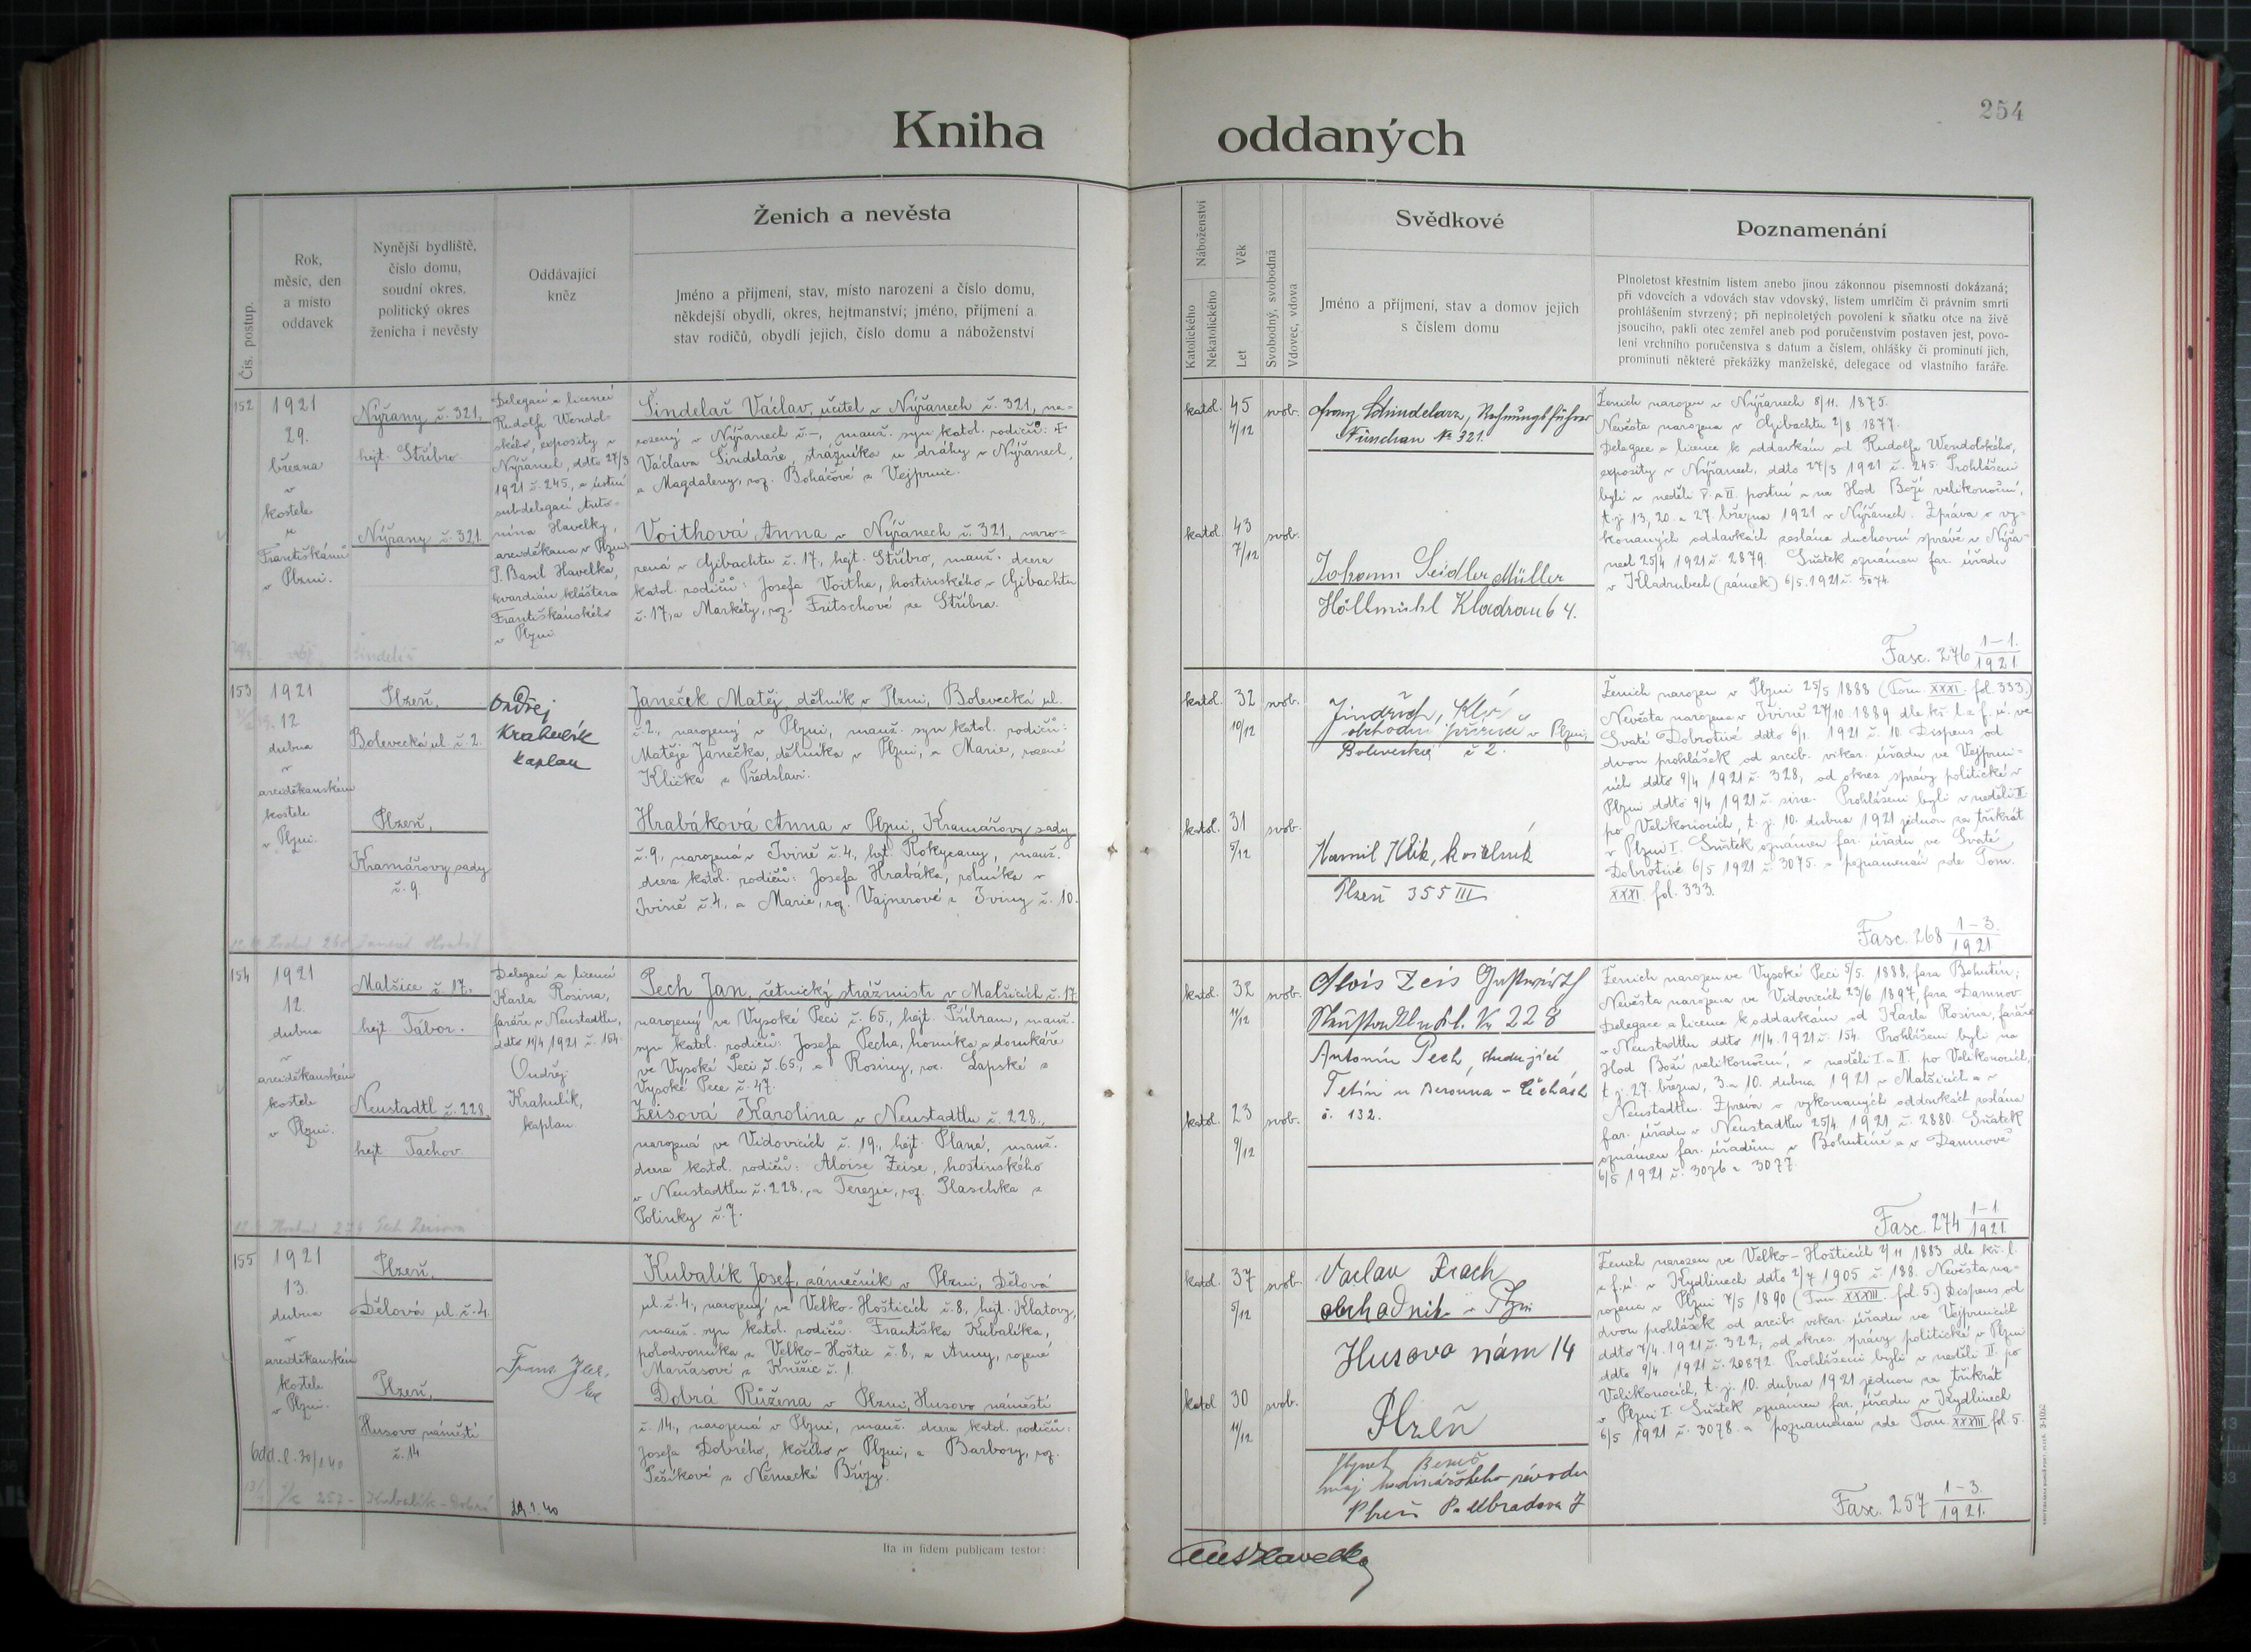 254
Kniha oddaných
Čís. postup.
Rok,
měsíc, den
a místo
oddavek
Nynější bydliště,
číslo domu,
soudní okres,
politický okres
ženicha i nevěsty
Oddávající
kněz
Ženich a nevěsta
Jméno a příjmení, stav, místo narození a číslo domu,
někdejší obydlí, okres, hejtmanství; jméno, příjmení a
stav rodičů, obydlí jejich, číslo domu a náboženství
Náboženství
Katolického
Nekatolického
Věk
Let
Svobodný, svobodná
Vdovec, vdova
Svědkové
Jméno a příjmení, stav a domov jejich
s číslem domu
Poznamenání
Plnoletost křestním listem anebo jinou zákonnou písemností dokázaná;
při vdovcích a vdovách stav vdovský, listem úmrlčím či právním smrti
prohlášením stvrzený; při neplnoletých povolení k sňatku otce na živě
jsoucího, pakli otec zemřel aneb pod poručenstvím postaven jest, povo-
lení vrchního poručenstva s datum a číslem, ohlášky či prominutí jich,
prominutí některé překážky manželské, delegace od vlastního faráře.
152
1921
29.
března
v
kostele
u
Františkánů
v Plzni.
Nýřany č. 321.
hejt. Stříbro
Nýřany č. 321.
Delegací a licencí
Rudolfa Wendol-
ského, exposity v
Nýřanech, ddto 27/3
1921 č. 245., a ústní
subdelegací Anto-
nína Havelky,
arciděkana v Plzni,
P. Basil Havelka,
kvardián kláštera
Františkánského
v Plzni
Šindelář Václav, učitel v Nýřanech č. 321, na-
rozený v Nýřanech č.-, manž. syn katol. rodičů: †
Václava Šindeláře, strážníka u dráhy v Nýřanech,
a Magdaleny, roz. Boháčové z Vejprnic.
Voithová Anna v Nýřanech č. 321, naro-
zená v Gibachtu č. 17, hejt. Stříbro, manž. dcera
katol. rodičů: Josefa Voitha, hostinského v Gibachtu
č. 17, a Markéty, roz. Fritschové ze Stříbra.
katol. 45 4/12 svob.
katol. 43 7/12 svob.
Franz Schindelarz, Rechnungsführer
Nürschan № 321.
Johann Seidler Müller
Höllmühl Kladrau 64.
Ženich narozen v Nýřanech 8/11. 1875.
Nevěsta narozena v Gibachtu 2/8 1877.
Delegace a licence k oddavkám od Rudolfa Wendolského,
exposity v Nýřanech, ddto 27/3 1921 č. 245. Prohlášeni
byli v neděli V. a VI. postní a na Hod Boží velikonoční,
t. j. 13, 20. a 27. března 1921 v Nýřanech. Zpráva o vy-
konaných oddavkách zaslána duchovní správě v Nýřa-
nech 25/4 1921 č. 2879. Sňatek oznámen far. úřadu
v Kladrubech (zámek) 6/5. 1921 č. 3074.
Fasc. 276 1-1./1921.
153
1921
12
dubna
v
arciděkanském
kostele
v Plzni.
Plzeň,
Bolevecká ul. č. 2.
Plzeň,
Kramářovy sady
č. 9
Ondřej
Krahulík
kaplan
Janeček Matěj, dělník v Plzni, Bolevecká ul.
č. 2., narozený v Plzni, manž. syn katol. rodičů:
Matěje Janečka, dělníka v Plzni, a Marie, rozené
Klička z Předslavi.
Hrabáková Anna v Plzni, Kramářovy sady
č. 9., narozená v Ivině č. 4., hejt. Rokycany, manž.
dcera katol. rodičů: Josefa Hrabáka, rolníka v
Ivině č. 4., a Marie, roz. Vajnerové z Iviny č. 10.
katol. 32 10/12 svob.
katol. 31 5/12 svob.
Jindřich,
v Plzni,
Bolevecká č 2.
Kamil Klik, kostelník
Plzeň 355 III
Ženich narozen v Plzni 25/5 1888 (Tom. XXXI. fol. 333.)
Nevěsta narozena v Ivině 27/10. 1889 dle kř. l. a f. ú. ve
Svaté Dobrotivé ddto 6/1. 1921 č. 10. Dispens od
dvou prohlášek od arcib. vikar. úřadu ve Vejprni-
cích ddto 9/4 1921 č. 328, od okres. správy politické v
Plzni ddto 9/4 1921 č. sine. Prohlášeni byli v neděli II
po Velikonocích, t. j. 10. dubna 1921 jednou za třikrát
v Plzni I. Sňatek oznámen far. úřadu ve Svaté
Dobrotivé 6/5 1921 č. 3075. a poznamenán zde Tom.
XXXI. fol. 333.
Fasc. 268 1-3./1921
154
1921
12.
dubna
v
arciděkanském
kostele
v Plzni.
Malšice č. 17.
hejt. Tábor.
Neustadtl č. 228.
hejt Tachov.
Delegací a licencí
Karla Rosina,
faráře v Neustadtlu,
ddto 11/4 1921 č. 154.
Ondřej
Krahulík,
kaplan
Pech Jan, četnický strážmistr v Malšicích č. 17
narozený ve Vysoké Peci č. 65., hejt. Příbram, manž.
syn katol. rodičů: Josefa Pecha, horníka a domkáře
ve Vysoké Peci č. 65., a Rosiny, roz. Lapské z
Vysoké Pece č. 47.
Zeisová Karolina v Neustadtlu č. 228.,
narozená ve Vidovicích č. 19., hejt. Planá, manž.
dcera katol. rodičů: Aloise Zeise, hostinského
v Neustadtlu č. 228., a Terezie, roz. Plaschka z
Polinky č. 7.
katol. 32 11/12 svob.
katol. 23 9/12 svob.
Alois Zeis Gastwirth
Neustadtl 228
Antonín Pech, studující
Tetín u Berouna - Čechách
č. 132.
Ženich narozen ve Vysoké Peci 5/5. 1888, fara Bohutín;
Nevěsta narozena ve Vidovicích 23/6 1897, fara Damnov.
Delegace a licence k oddavkám od Karla Rosina, faráře
v Neustadtlu ddto 11/4. 1921 č. 154. Prohlášeni byli na
Hod Boží velikonoční, v neděli I. a II. po Velikonocích,
t. j. 27. března, 3. a 10. dubna 1921 v Malšicích a v
Neustadtlu. Zpráva o vykonaných oddavkách zaslána
far. úřadu v Neustadtlu 25/4 1921 č. 2880. Sňatek
oznámen far. úřadům v Bohutíně a v Damnově
6/5 1921 č. 3076 a 3077.
Fasc. 274 1-1/1921.
155
1921
13.
dubna
v
arciděkanském
kostele
v Plzni.
Plzeň,
Dělová ul. č. 4.
Plzeň,
Husovo náměstí
č. 14
Kubalík Josef, zámečník v Plzni, Dělová
ul. č. 4., narozený ve Velko-Hošticích č. 8., hejt. Klatovy,
manž. syn katol. rodičů: Františka Kubalíka,
polodvorníka z Velko-Hoštic č. 8., a Anny, rozené
Maňasové z Kněžic č. 1.
Dobrá Růžena v Plzni, Husovo náměstí
č. 14., narozená v Plzni, manž. dcera katol. rodičů:
Josefa Dobrého, kočího v Plzni, a Barbory, roz.
Pešíkové z Německé Břízy.
Odd. l. 30/1 40
29.1.40
katol. 37 5/12 svob.
katol 30 11/12 svob.
Vaclav
obchodník v Plzni
Husovo nám 14
Plzeň
Hynek Beneš
maj hodinářského závodu
Plzeň Poděbradova 7
Ženich narozen ve Velko-Hošticích 4/11 1883 dle kř. l.
z f. ú v Kydlinech ddto 2/7 1905 č. 188. Nevěsta na-
rozena v Plzni 7/5 1890 (Tom. XXXIII. fol. 5.) Dispens od
dvou prohlášek od arcib. vikar. úřadu ve Vejprnicích
ddto 7/4. 1921 č. 322, od okres. správy politické v Plzni
ddto 9/4 1921 č. 20872. Prohlášeni byli v neděli II. po
Velikonocích, t. j. 10. dubna 1921 jednou za třikrát
v Plzni I. Sňatek oznámen far. úřadu v Kydlinech
6/5 1921 č. 3078. a poznamenán zde Tom. XXXIII. fol. 5.
Fasc. 257 1-3./1921.
Ita in fidem publicam testor:
Ant Havelka